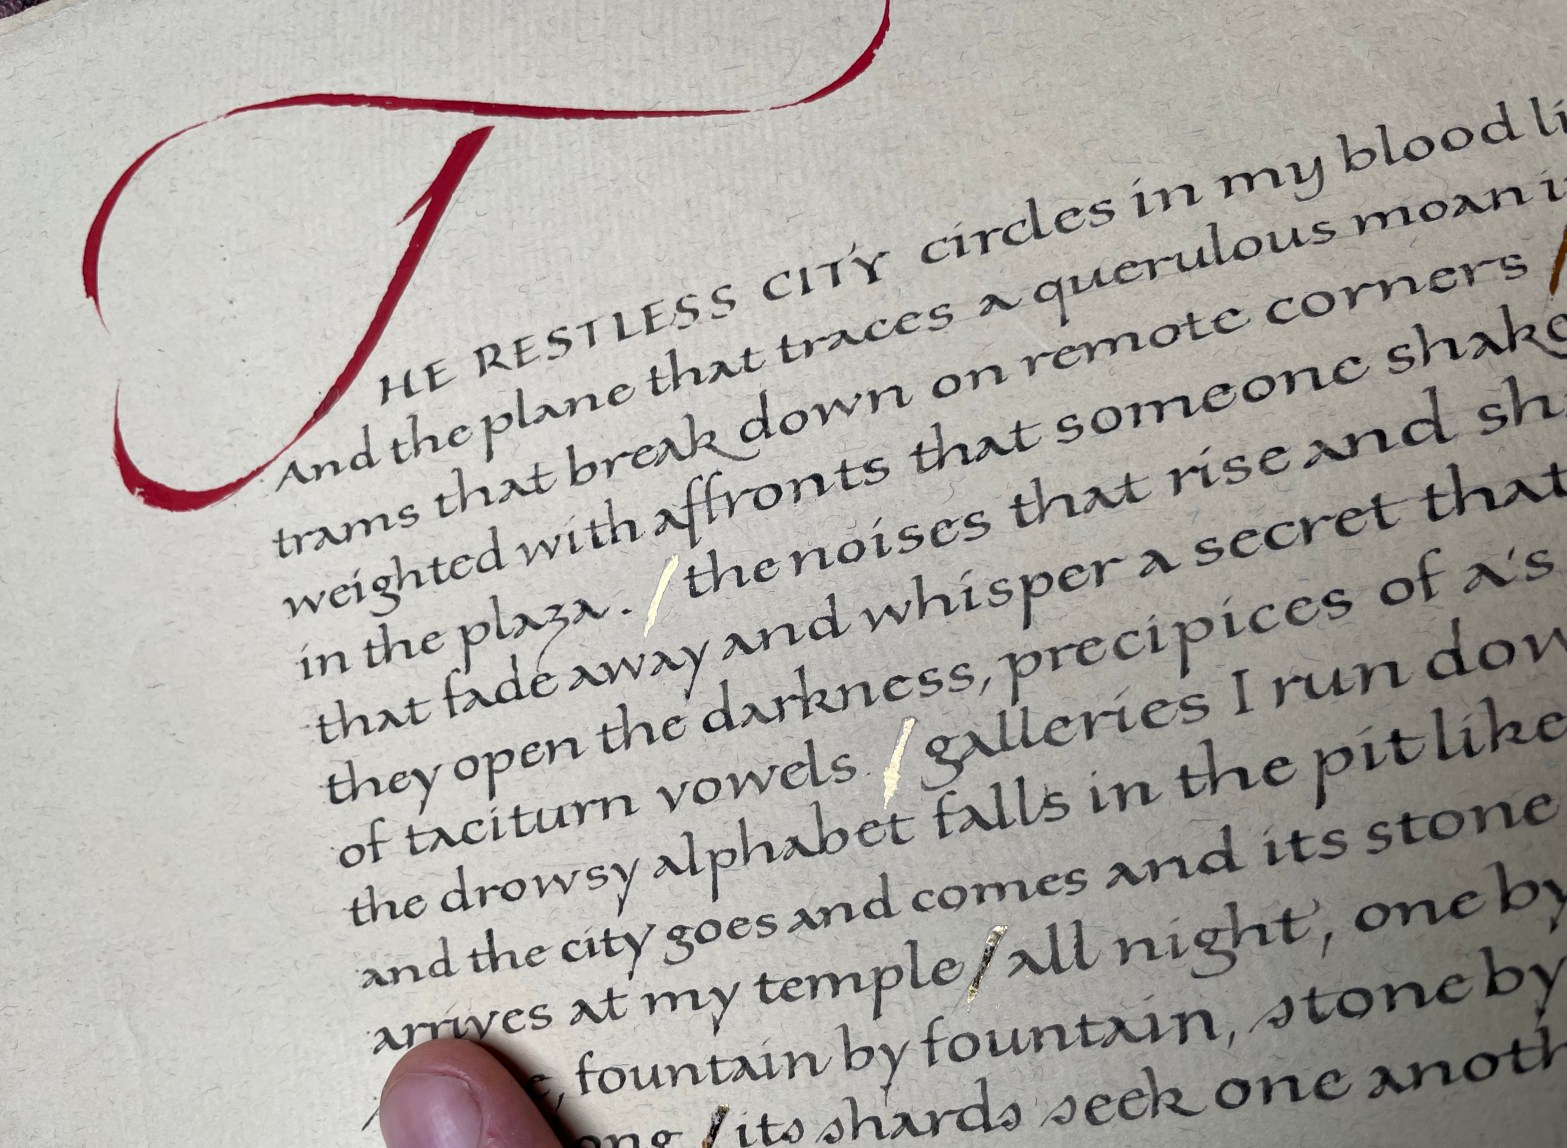 THE RESTLESS CITY circles in my blood
And the plane that traces a querulous moan
trams that break down on remote corners /
weighted with affronts that someone shake
in the plaza. / the noises that rise and
that fade away and whisper a secret that
they open the darkness, precipices of a's
of taciturn vowels / galleries I run
the drowsy alphabet falls in the pit like
and the city goes and comes and its stone
arrives at my temple / all night, one by
fountain by fountain, stone by
/ its shards seek one